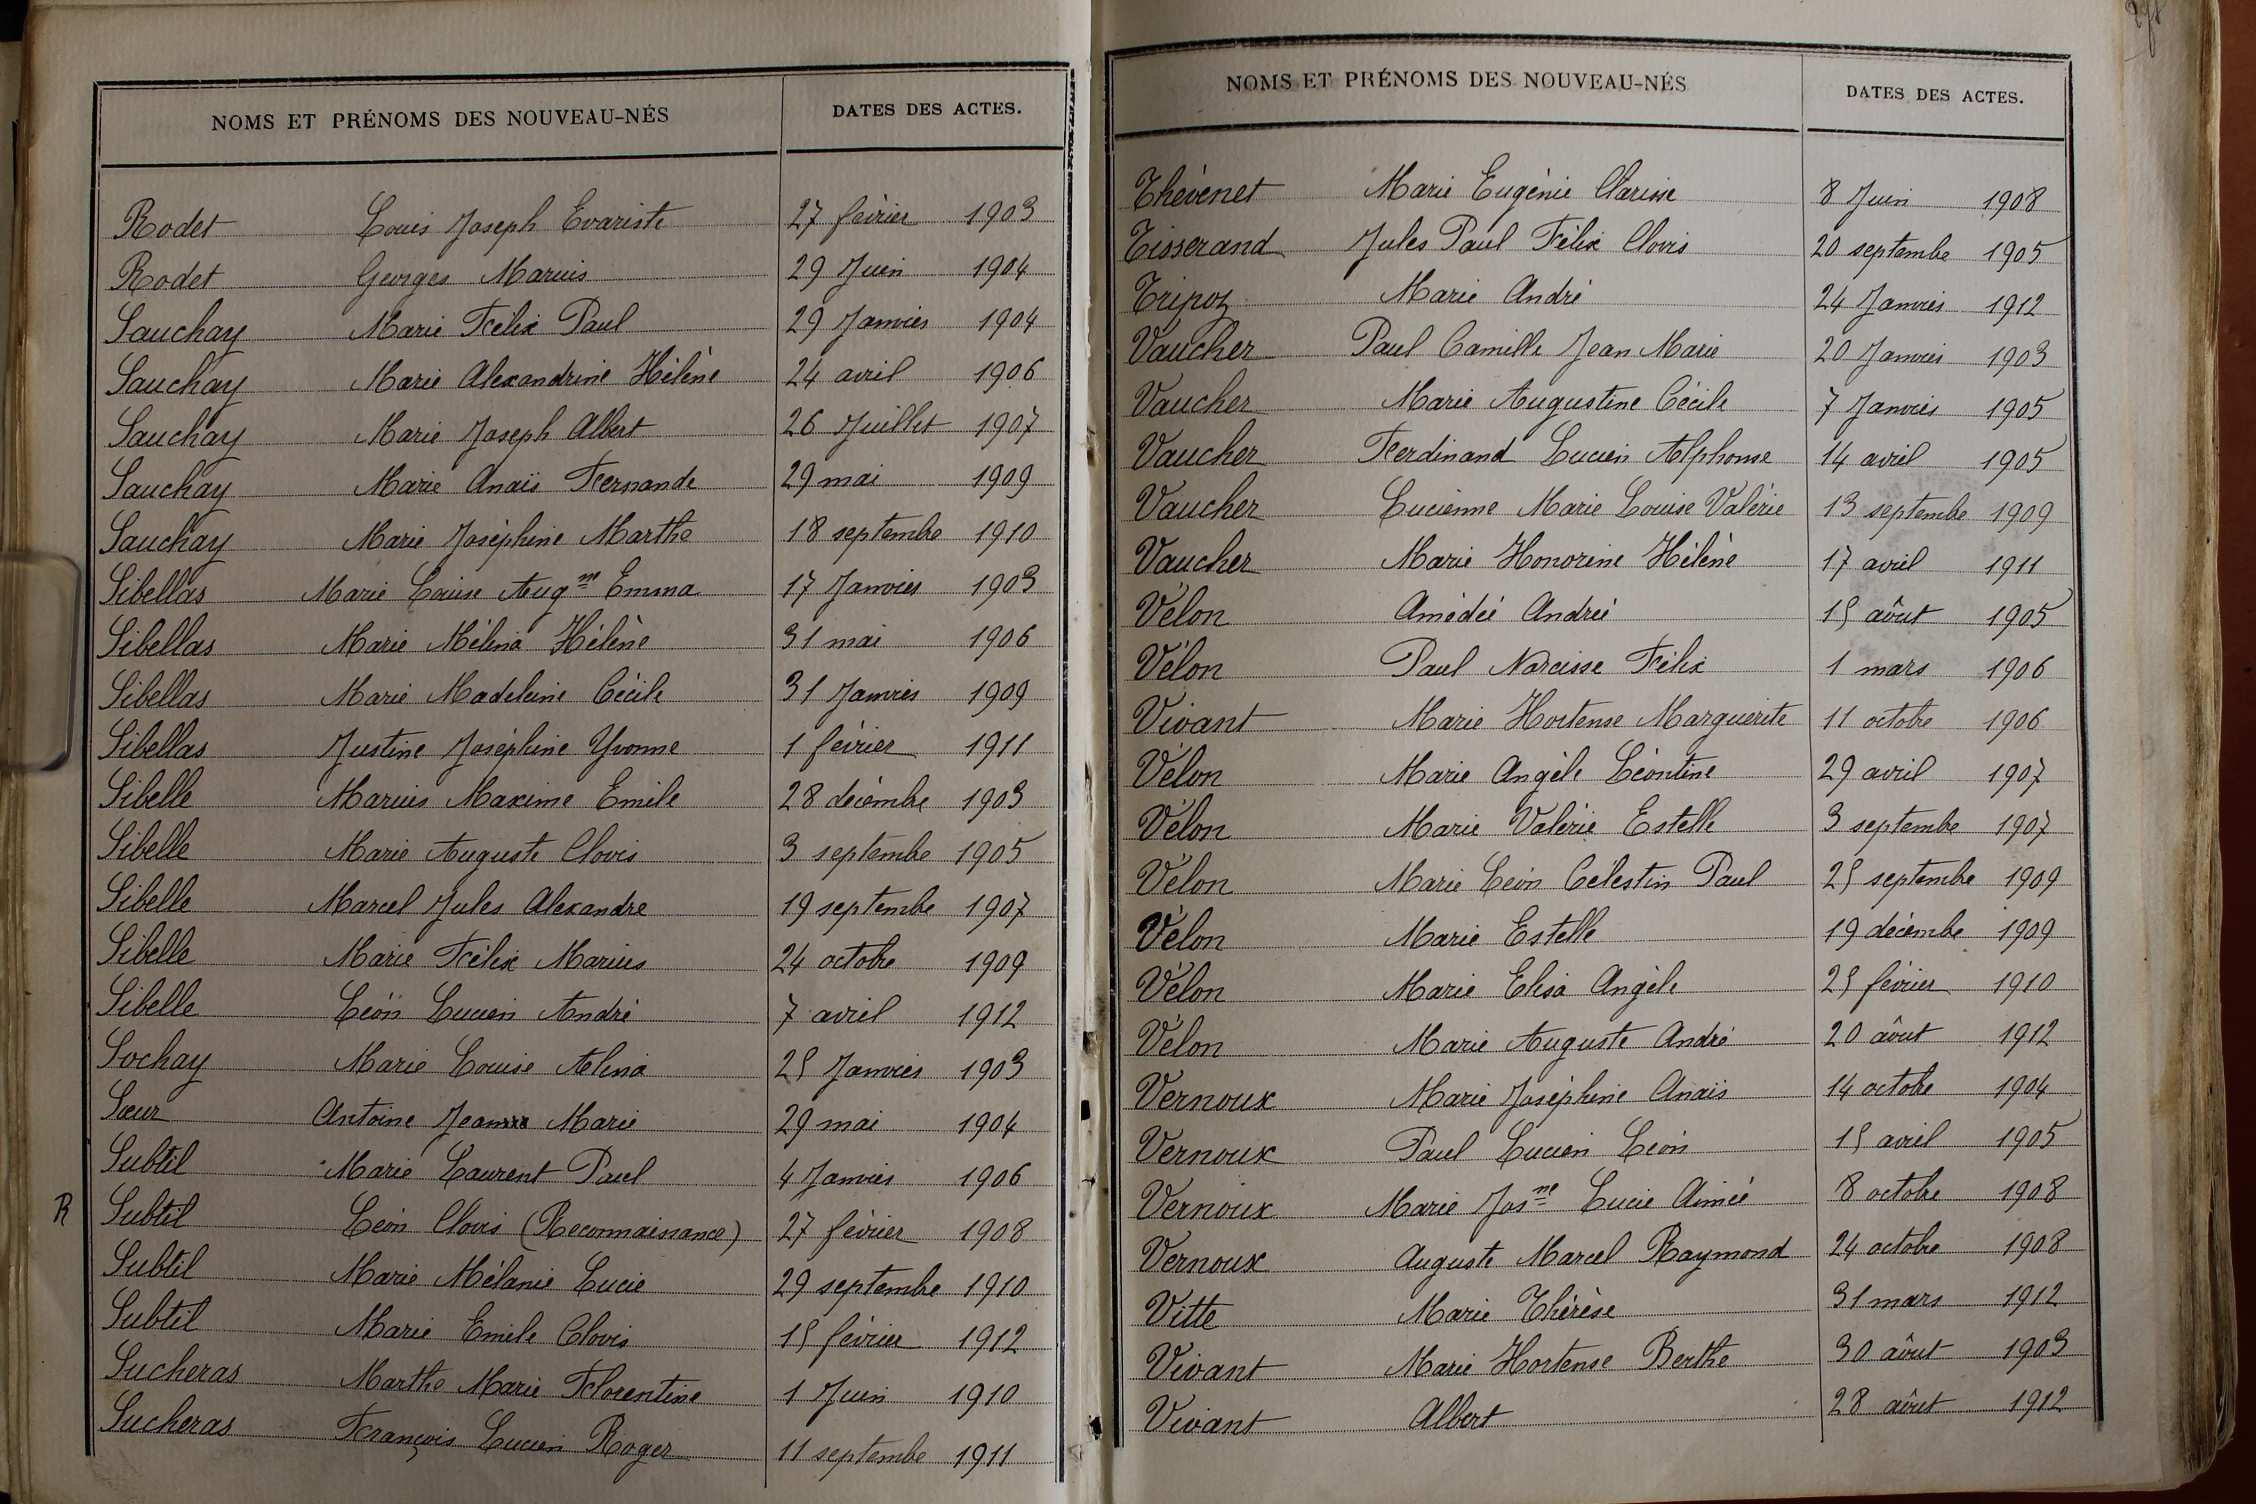 NOMS ET PRÉNOMS DES NOUVEAU-NÉS DATES DES ACTES.
Rodet Louis Joseph Evariste 27 février 1903
Rodet Georges Marius 29 Juin 1904
Sauchay Marie Félix Paul 29 Janvier 1904
Sauchay Marie Alexandrine Hélène 24 avril 1906
Sauchay Marie Joseph Albert 26 Juillet 1907
Sauchay Marie Anaïs Fernande 29 mai 1909
Sauchay Marie Joséphine Marthe 18 septembre 1910
Sibellas Marie Louise Aug.ne Emma 17 Janvier 1903
Sibellas Marie Mélina Hélène 31 mai 1906
Sibellas Marie Madeleine Cécile 31 Janvier 1909
Sibellas Justine Joséphine Yvonne 1 février 1911
Sibelle Marius Maxime Emile 28 décembre 1903
Sibelle Marie Auguste Clovis 3 septembre 1905
Sibelle Marcel Jules Alexandre 19 septembre 1907
Sibelle Marie Félix Marius 24 octobre 1909
Sibelle Léon Lucien André 7 avril 1912
Sochay Marie Louise Alina 25 Janvier 1903
Sœur Antoine Jean Marie 29 mai 1904
Subtil Marie Laurent Paul 4 Janvier 1906
R Subtil Léon Clovis (Reconnaissance) 27 février 1908
Subtil Marie Mélanie Lucie 29 septembre 1910
Subtil Marie Emile Clovis 15 février 1912
Sucheras Marthe Marie Florentine 1 Juin 1910
Sucheras François Lucien Roger 11 septembre 1911
NOMS ET PRÉNOMS DES NOUVEAU-NÉS DATES DES ACTES.
Thévenet Marie Eugénie Clarisse 8 Juin 1908
Tisserand Jules Paul Félix Clovis 20 septembre 1905
Tripoz Marie André 24 Janvier 1912
Vaucher Paul Camille Jean Marie 20 Janvier 1903
Vaucher Marie Augustine Cécile 7 Janvier 1905
Vaucher Ferdinand Lucien Alphonse 14 avril 1905
Vaucher Lucienne Marie Louise Valérie 13 septembre 1909
Vaucher Marie Honorine Hélène 17 avril 1911
Vélon Amédée André 15 aôut 1905
Vélon Paul Narcisse Félix 1 mars 1906
Vivant Marie Hortense Marguerite 11 octobre 1906
Vélon Marie Angèle Léontine 29 avril 1907
Vélon Marie Valérie Estelle 3 septembre 1907
Vélon Marie Léon Célestin Paul 25 septembre 1909
Vélon Marie Estelle 19 décembre 1909
Vélon Marie Elisa Angèle 25 février 1910
Vélon Marie Auguste André 20 aôut 1912
Vernoux Marie Joséphine Anaïs 14 octobre 1904
Vernoux Paul Lucien Léon 15 avril 1905
Vernoux Marie Jos.ne Lucie Aimée 8 octobre 1908
Vernoux Auguste Marcel Raymond 24 octobre 1908
Vitte Marie Thérèse 31 mars 1912
Vivant Marie Hortense Berthe 30 aôut 1903
Vivant Albert 28 aôut 1912